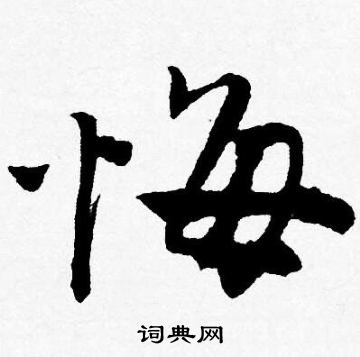 悔
词典网